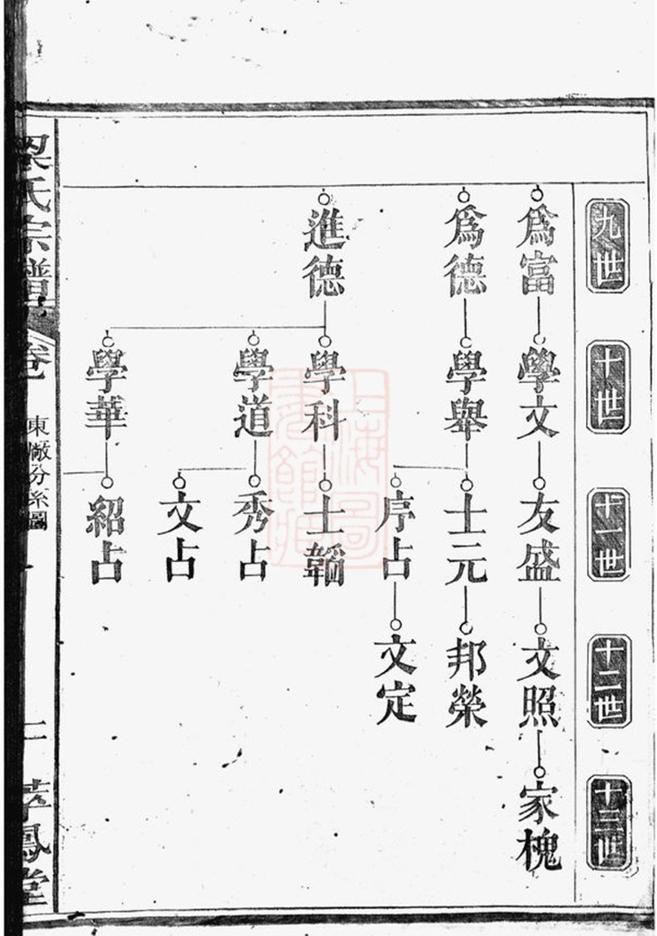 九世
十世
十一世
十二世
十三世
爲富
學文
友盛
文照
家槐
爲德
學舉
士元
邦榮
序占
文定
進德
學科
士韜
學道
秀占
文占
學華
紹占
氏宗譜
卷一
東敝分系圖
二
鳳堂